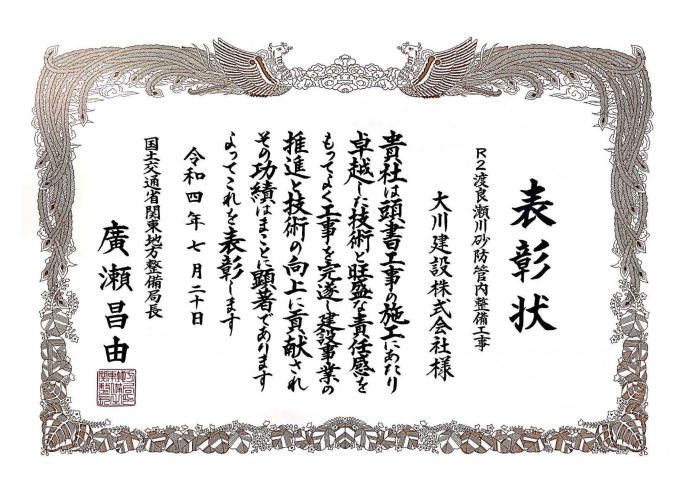 表彰状
R2渡良瀬川砂防管内整備工事
大川建設株式会社様
貴社は頭書工事の施工にあたり
卓越した技術と旺盛な責任感を
もってよく工事を完遂し建設事業の
推進と技術の向上に貢献され
その功績はまことに顕著であります
よってこれを表彰します
令和四年七月二十日
国土交通省関東地方整備局長
廣瀬昌由